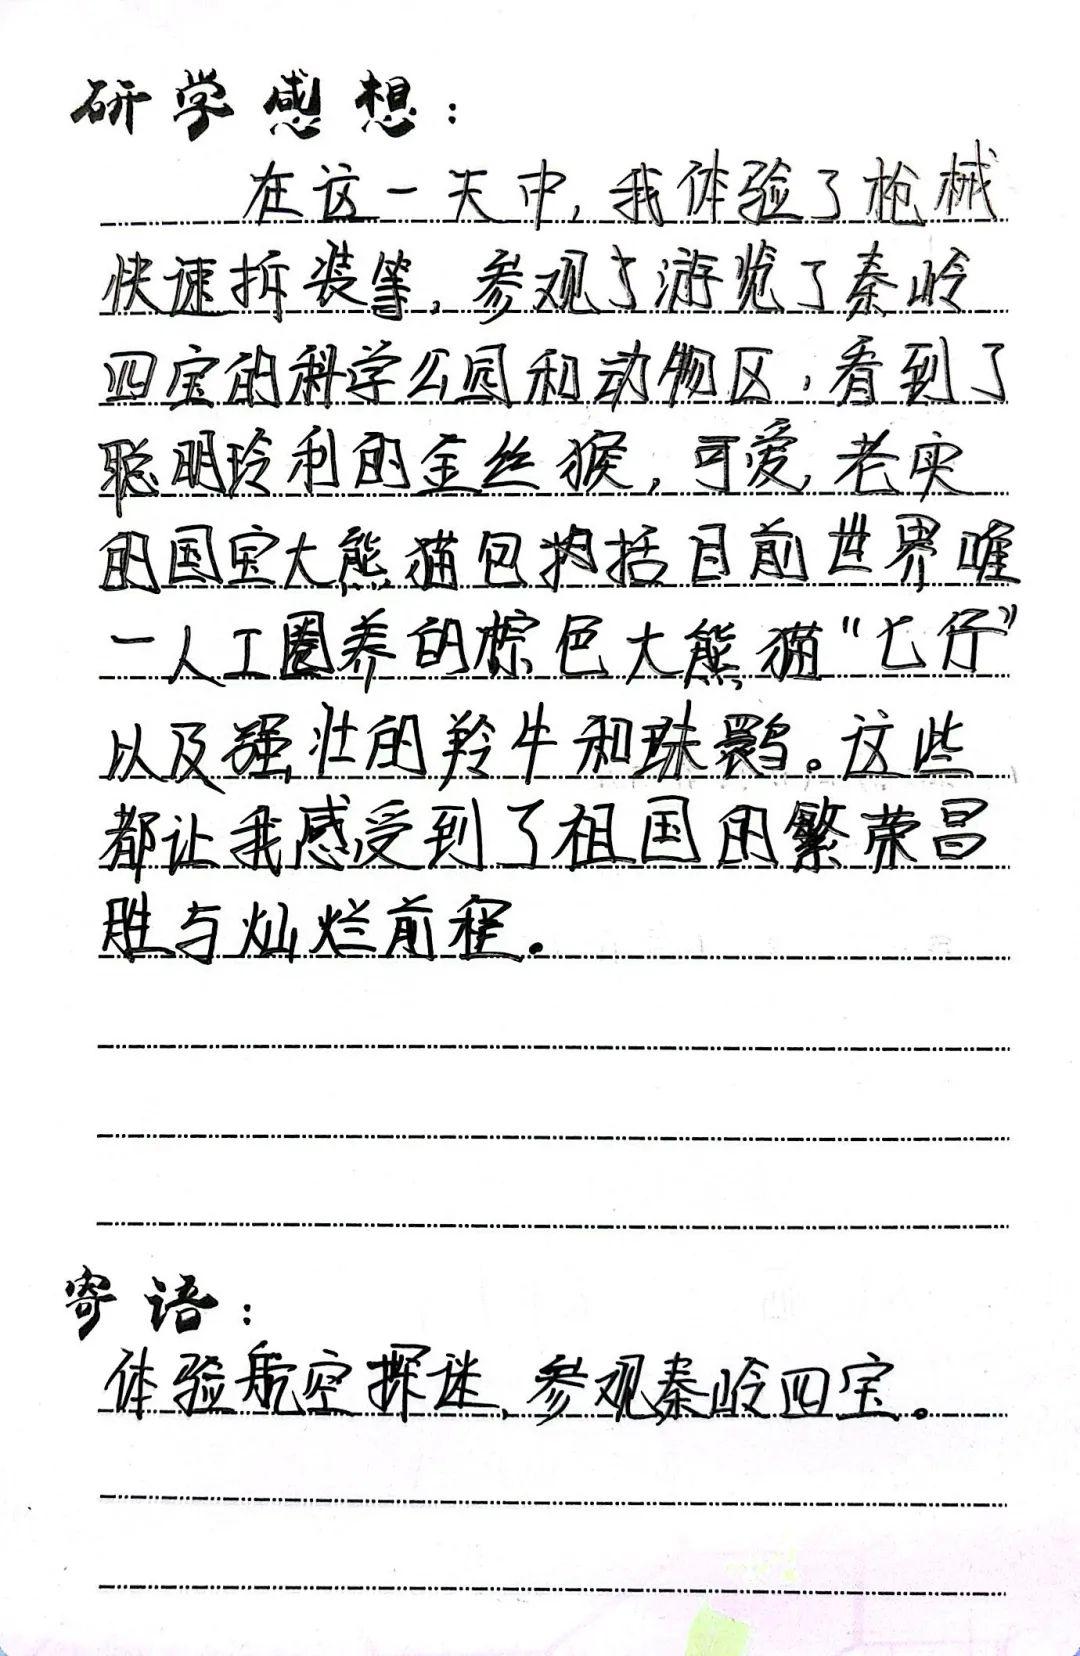 研学感想：
在这一天中，我体验了枪械
快速拆装等，参观了游览了秦岭
四宝的科学公园和动物区，看到了
聪明玲利的金丝猴，可爱，老实
的国宝大熊猫包括目前世界唯
一人工圈养的棕色大熊猫“七仔”
以及强壮的羚牛和珠鹮。这些
都让我感受到了祖国的繁荣昌
胜与灿烂前程。
寄语：
体验航空探谜，参观秦岭四宝。